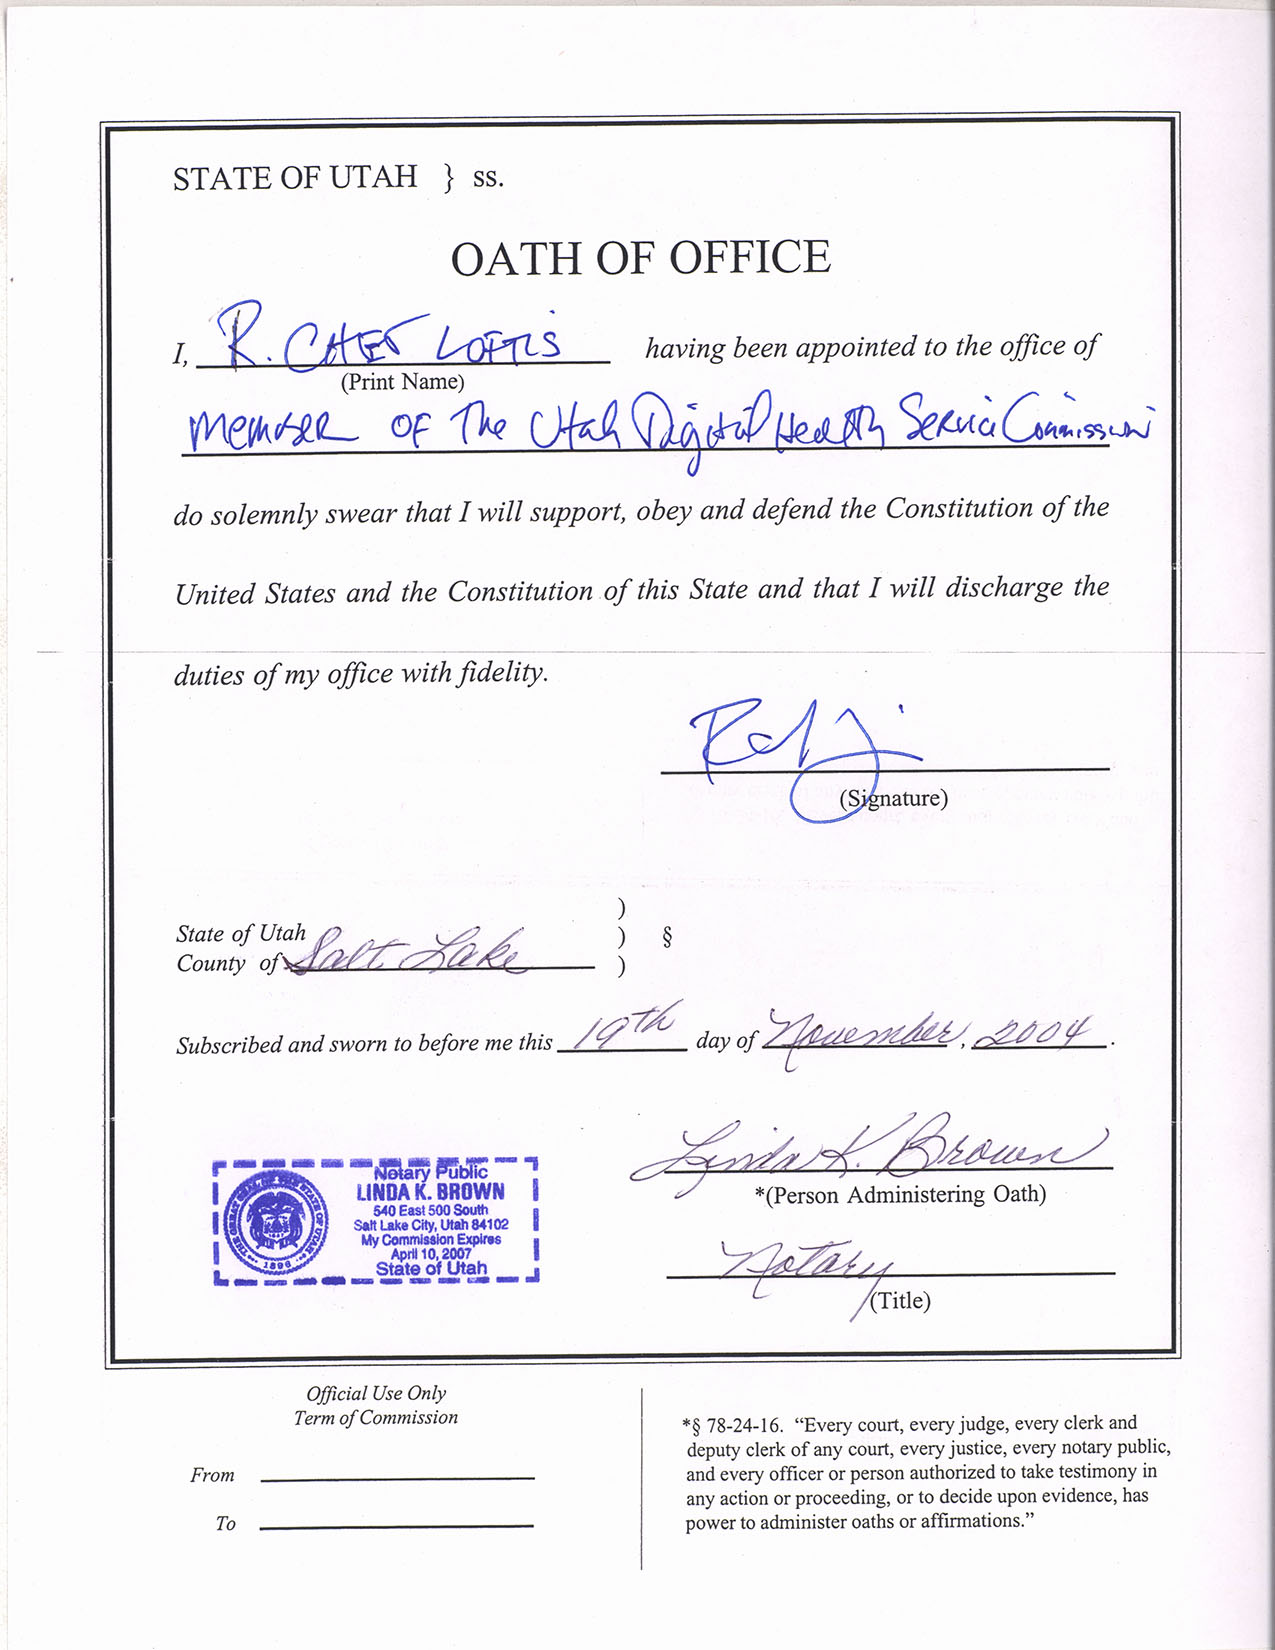 STATE OF UTAH } ss.
OATH OF OFFICE
I, R. CHET LOFTIS having been appointed to the office of
(Print Name)
Member OF The Utah Digital Health Service Commission
do solemnly swear that I will support, obey and defend the Constitution of the
United States and the Constitution of this State and that I will discharge the
duties of my office with fidelity.
(Signature)
)
State of Utah ) §
County of Salt Lake )
Subscribed and sworn to before me this 19th day of November, 2004.
Linda K. Brown
*(Person Administering Oath)
Notary
(Title)
Notary Public
LINDA K. BROWN
540 East 500 South
Salt Lake City, Utah 84102
My Commission Expires
April 10, 2007
State of Utah
THE GREAT SEAL OF THE STATE OF UTAH
1896
Official Use Only
Term of Commission
From
To
*§ 78-24-16. “Every court, every judge, every clerk and
deputy clerk of any court, every justice, every notary public,
and every officer or person authorized to take testimony in
any action or proceeding, or to decide upon evidence, has
power to administer oaths or affirmations.”